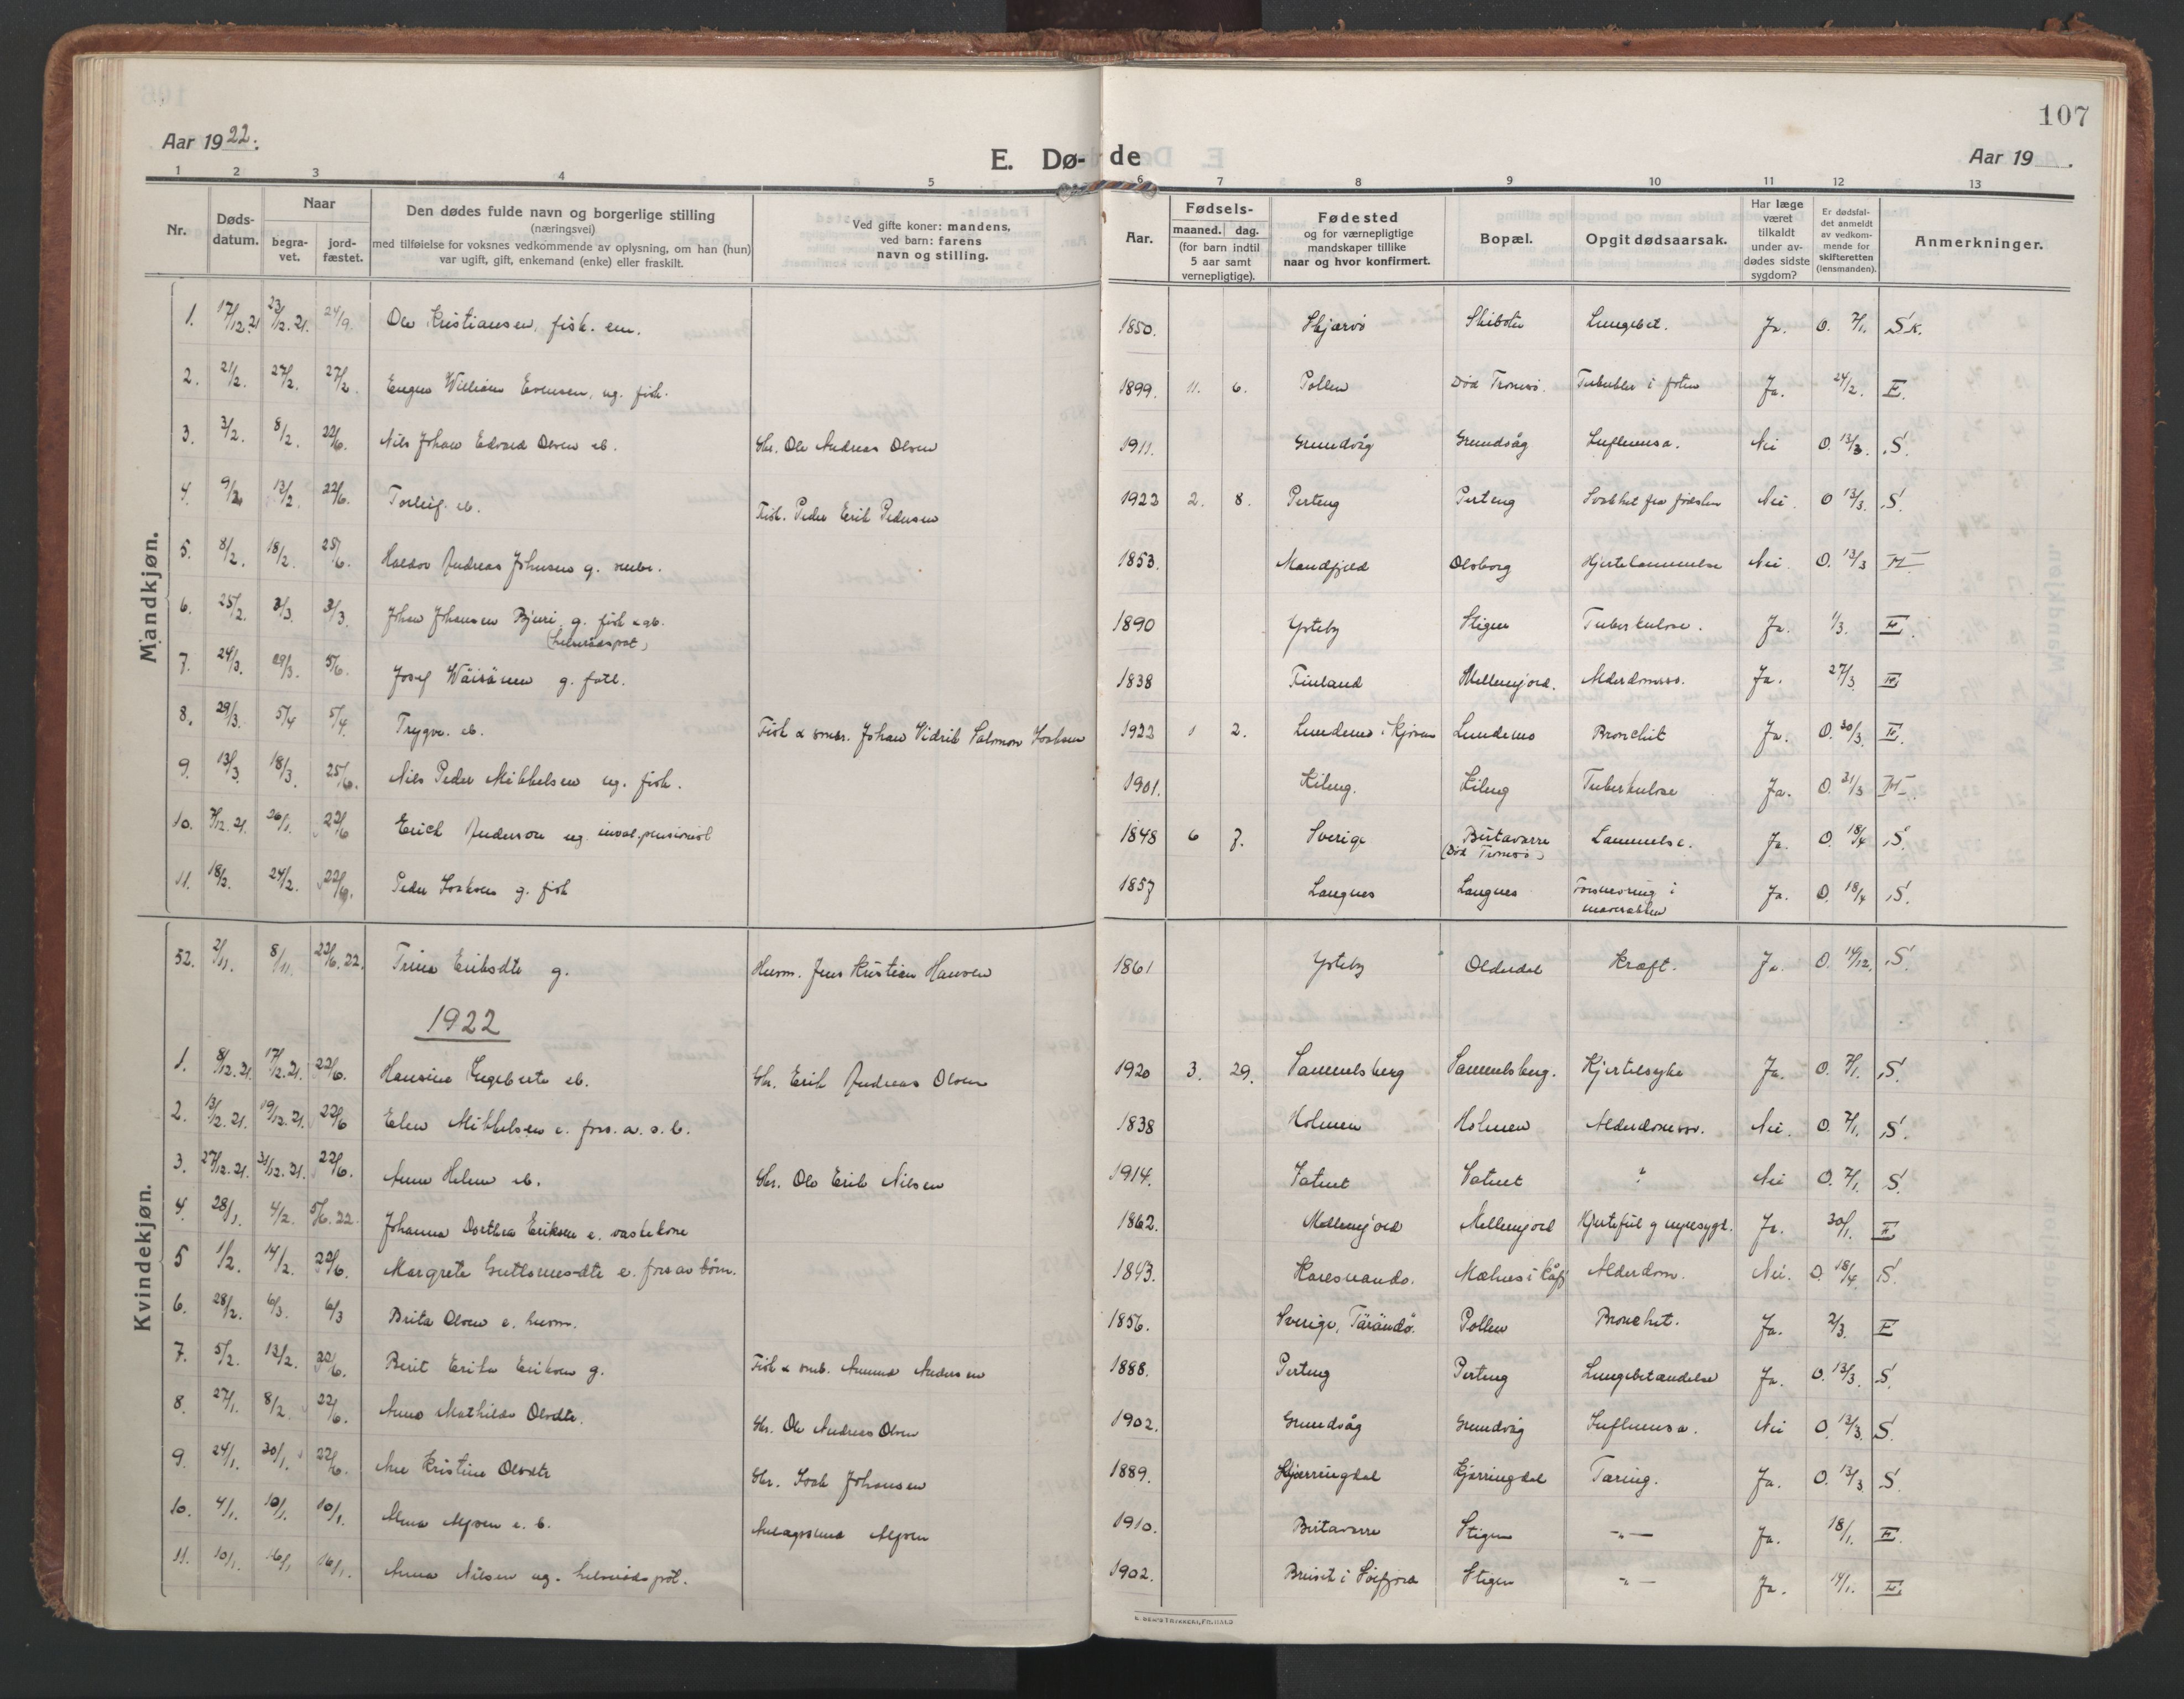 107
Aar 1922.
E. Dø-de
Aar 19
1 2 3 4 5 6 7 8 9 10 11 12 13
Nr.
Døds-datum.
Naar
begra-vet.
jord-fæstet.
Den dødes fulde navn og borgerlige stilling
(næringsvei)
med tilføielse for voksnes vedkommende av oplysning, om han (hun)
var ugift, gift, enkemand (enke) eller fraskilt.
Ved gifte koner: mandens,
ved barn: farens
navn og stilling.
Aar.
Fødsels-
maaned. dag.
(for barn indtil
5 aar samt
vernepligtige).
Fødested
og for værnepligtige
mandskaper tillike
naar og hvor konfirmert.
Bopæl.
Opgit dødsaarsak.
Har læge
været
tilkaldt
under av-
dødes sidste
sygdom?
Er dødsfal-
det anmeldt
av vedkom-
mende for
skifteretten
(lensmanden).
Anmerkninger.
Mandkjøn.
1. 17/12.21 23/12.21. 24/9. Ole Kristiansen, fisk. em. 1850. Skjærvö Skibotn Lungebet. Ja. O. 7/1. S.K.
2. 21/2. 27/2. 27/2. Eugen William Evensen, ug. fisk. 1899. 11. 6. Pollen Död Tromsö. Tuberkler i foten Ja. 24/2. E.
3. 3/2. 8/2. 22/6. Nils Johan Edvard Olsen eb. Gbr. Ole Andreas Olsen 1911. Grundvåg Grundvåg Influensa. Nei O. 13/3. S.
4. 9/2 12/2. 22/6. Torleif. eb. Fisk. Peder Erik Pedersen 1922 2. 8. Perteng Perteng Svakhet fra födselen Nei. O 13/3. S.
5. 8/2. 18/2. 25/6. Haldor Andreas Johnsen g. smbr. 1853. Mandfjeld Olsborg Hjertelammelse Nei. O. 13/3 M
6. 25/2. 3/3. 3/3. Johan Johansen Bjuri, g. fisk & gb. 1890 Ysteby Stigen Tuberkulose. Ja. 1/3. E.
7. 24/3. 29/3. 5/6. Josef Wäisänen g. fatt. (helseråds pat) 1838 Finland Mellemjord. Alderdomssv. Ja. 27/3 E
8. 29/3. 5/4 5/4. Trygve. eb. Fisk & smbr. Johan Vidrik Salomon Isaksen 1922 1 2. Lundemo i Kjosen Lundemo Bronchit Ja. O. 30/3. E.
9. 13/3. 18/3. 25/6. Nils Peder Mikkelsen ug. fisk. 1901. Kileng. Kileng Tuberkulose Ja. O. 31/3 M
10. 7/12.21. 26/1. 22/6 Erich Anderson ug. inval.pensionist 1848 6 7. Sverige Birtavarre (Död Tromsö) Lammelse. Ja. O. 18/4 S.
11. 18/2. 24/2. 22/6. Peder Isaksen g. fisk 1857 Langnes Langnes Forsnevring i mavesækken Ja. O. 18/4 S.
Kvindekjøn.
52. 2/11. 8/11. 22/6.22. Trina Eriksdtr g. Husm. Jens Kristian Hansen 1861 Ysteby Olderdal Kræft. Ja. O. 14/12. S.
1922
1. 8/12.21. 17/12.21. 22/6. Hansine Ingeborta eb. Gbr. Erik Andreas Olsen 1920 3. 29. Samuelsberg Samuelsberg. Hjertesyke Ja. O. 7/1. S.
2. 13/12.21. 19/12.21. 22/6 Elen Mikkelsen e. fors. a. s. b. 1838 Holmen Holmen Alderdomssv. Nei. O. 7/1. S.
3. 27/12.21. 31/12.21. 22/6. Anna Helene eb. Gbr. Ole Erik Nilsen 1914. Vatnet Vatnet ? Nei O. 7/1. S.
4. 28/1. 4/2. 5/6.22. Johanna Dorthea Eriksen e. vaskekone 1862. Mellemjord Mellemjord Hjertefeil g nyresygd. Ja. 30/1. E
5 1/2. 14/2. 22/6. Margrete Guttormsdtr e. fors av börn. 1843. Karesuando. Mælnes i Kåfj Alderdom. Nei. O. 18/4 S.
6. 28/2. 6/3. 6/3 Brita Olsen e. husm. 1856. Sverige, Tärändö. Pollen Bronchit. Ja. 2/3. E
7. 5/2. 12/2. 22/6. Berit Erika Eriksen g. Fisk & smb. Amund Andersen 1888. Perteng Perteng Lungebetændelse Ja. O. 13/3. S.
8. 27/1. 8/2. 22/6. Anna Mathilde Olsdtr. Gbr. Ole Andreas Olsen 1902. Grundvåg Grundvåg Influensa. Nei O. 13/3. S.
9. 24/1. 30/1. 22/6. Ane Kristine Olsdtr Gbr. Isak Johansen 1889. Skjærringdal Kjerringdal Tæring. Ja. O. 13/3. S.
10. 4/1. 10/1. 10/1. Alma Nilsen e. b. 1910. Birtavarre Stigen -"- Ja. 18/1. E.
11. 10/1. 16/1 16/1. Anna Nilsen ug. helseråds pat. 1902. Stigen -"- Ja. 14/1. E.